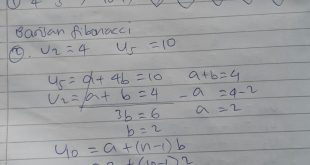 Barisan fibonacci
②. U2 = 4 U5 = 10
U5 = a + 4b = 10 a + b = 4
U2 = a + b = 4 - a = 4 - 2
3b = 6 a = 2
b = 2
U0 = a + (n-1) b